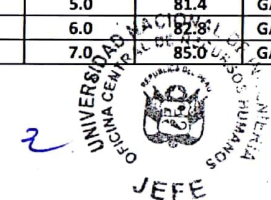 5.0 81.4 GA
6.0 82.8 GA
7.0 85.0 GA
UNIVERSIDAD NACIONAL DE
OFICINA CENTRAL DE RECURSOS HUMANOS
REPUBLICA DEL PERU
JEFE